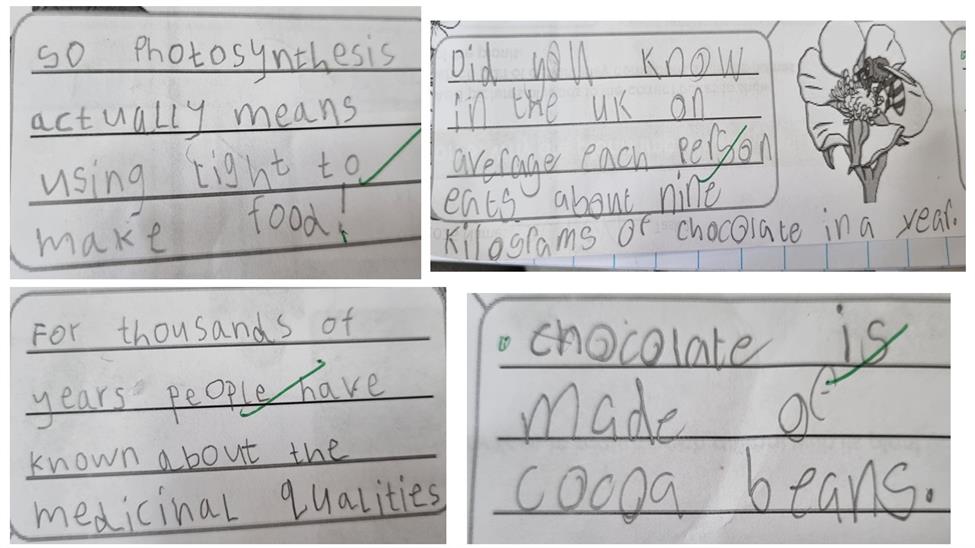 So Photosynthesis
actually means
using light to
make food!
Did you know
in the uk on
average each person
eats about nine
kilograms of chocolate in a year.
For thousands of
years people have
known about the
medicinal qualities
chocolate is
made of
cocoa beans.